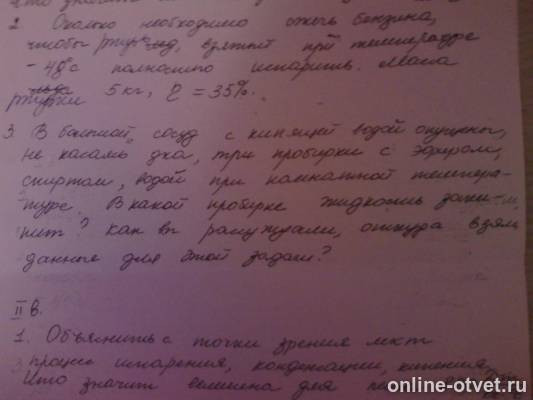 2. Сколько необходимо сжечь бензина,
чтобы ртуть, взятой при температуре
- 48°с полностью испарить. Масса
ртути 5 кг, η = 35%.
3. В большой сосуд с кипящей водой опущены,
не касаясь дна, три пробирки с эфиром,
спиртом, водой при комнатной темпера-
туре. В какой пробирке жидкость заки-
пит? Как вы рассуждали, откуда взяли
данные для этой задачи?
II в.
1. Объяснить с точки зрения мкт
процесс испарения, конденсации, кипения.
Что значит
online-otvet.ru